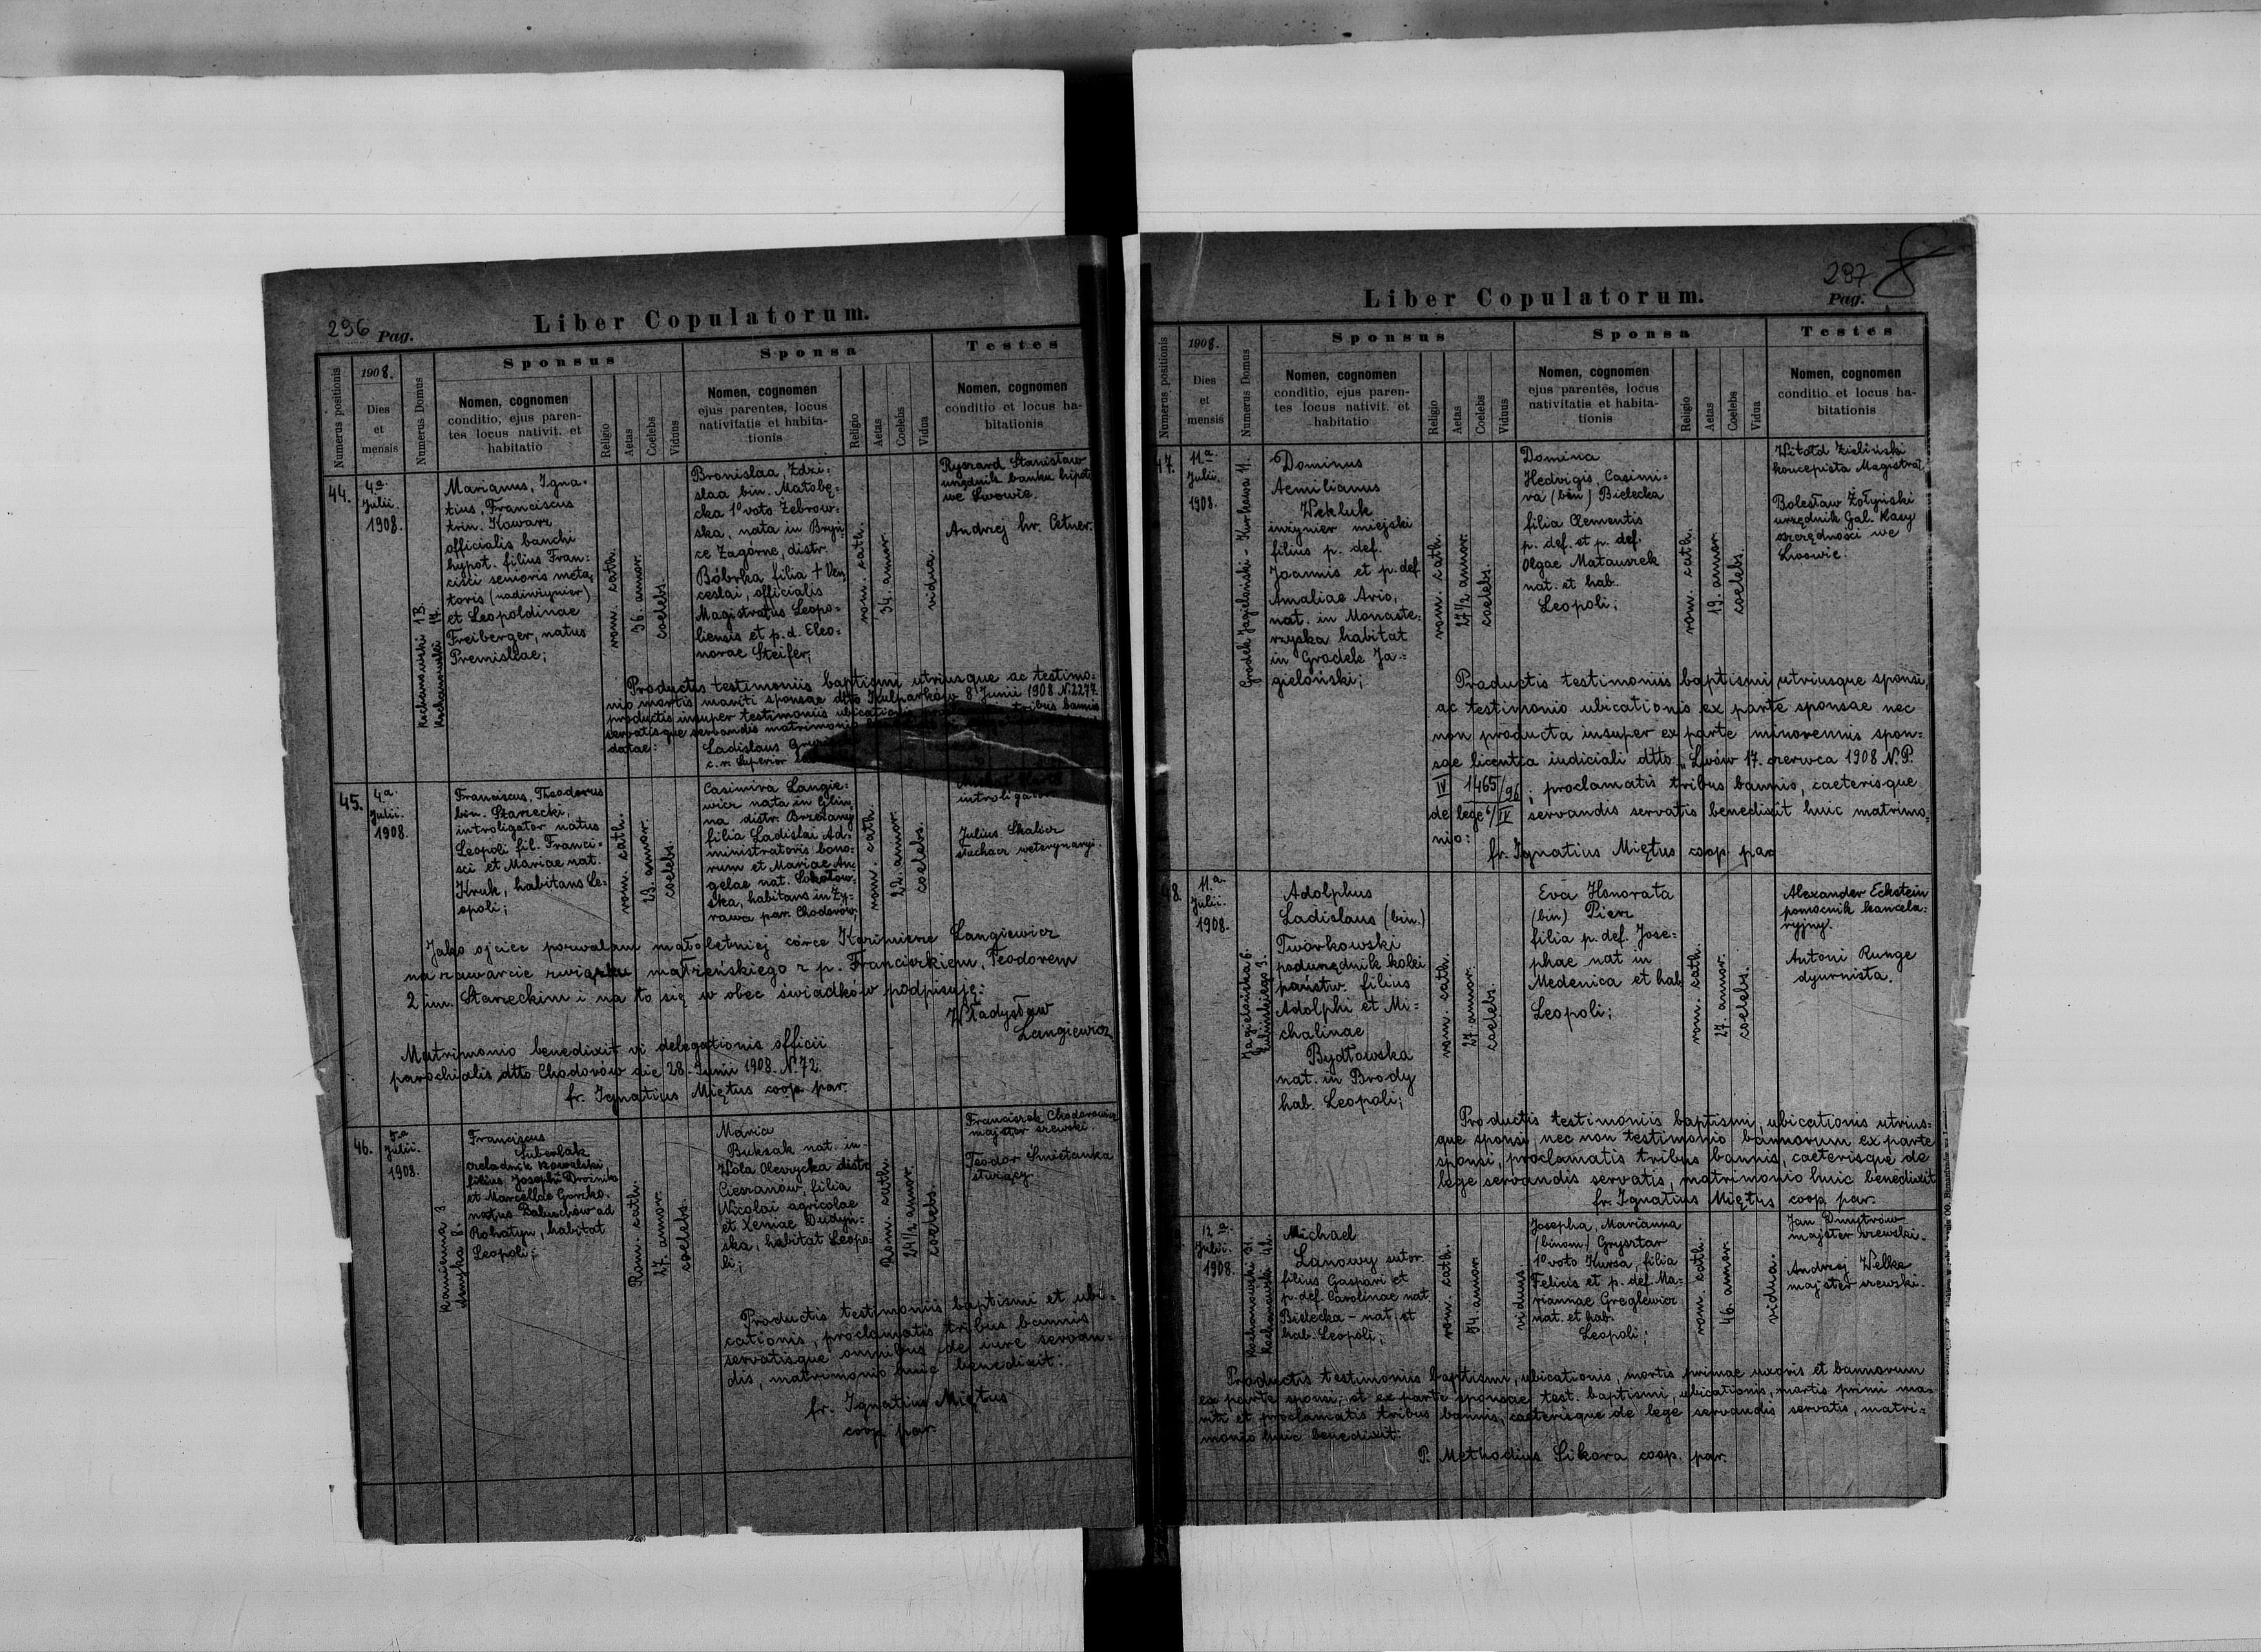 296 Pag.
Liber Copulatorum.
Numerus positionis
1908.
Dies
et
mensis
Numerus Domus
Sponsus
Nomen, cognomen
conditio, ejus paren-
tes locus nativit. et
habitatio
Religio
Aetas
Coelebs
Viduus
Sponsa
Nomen, cognomen
ejus parentes, locus
nativitatis et habita-
tionis
Religio
Aetas
Coelebs
Vidua
Testes
Nomen, cognomen
conditio et locus ha-
bitationis
44.
4a
Julii.
1908.
Kochanowski 13.
Kochanowski 14.
Marianus, Igna-
tius, Franciscus
trin. Kowarz
officialis banchi
hypot. filius Fran-
cisci senioris meta-
toris (nadinżynier)
et Leopoldinae
Freiberger, natus
Premisliae;
rom. cath.
36. annor.
coelebs.
Bronislaa, Zdzi-
slaa bin. Małobę-
cka 1º voto Żebrow-
ska, nata in Bryń-
ce Zagórne, distr.
Bóbrka filia + Ven-
ceslai, officialis
Magistratus Leopo-
liensis et p. d. Eleo-
norae Steifer;
rom. cath.
34. annor.
vidua.
Ryszard Stanisław
urzędnik banku hipot.
we Lwowie.
Andrzej hr. Cetner.
Productis testimoniis baptismi utriusque ac testimo-
nio mortis mariti sponsae dtto Kulparków 8 Junii 1908 N. 2277.
productis insuper testimoniis ubicationis tribus bannis
servatisque servandis matrimonio
datae:
Ladislaus
c. r. Superior
45.
4.a
Julii.
1908.
Franciscus, Theodorus
bin. Starzecki,
introligator natus
Leopoli fil. Franci-
sci et Mariae nat.
Kruk, habitans Le-
opoli;
rom. cath.
23. annor.
coelebs.
Casimira Langie-
wicz nata in Glin-
na distr. Brzeżany
filia Ladislai Ad-
ministratoris bono-
rum et Mariae An-
gelae nat. Sokołow-
ska, habitans in Ży-
rawa par. Chodorów;
rom. cath.
22. annor.
coelebs.
introligator
Julius. Skalicz
słuchacz weterynaryi.
Jako ojciec pozwalam małoletniej córce Kazimierze Langiewicz
na zawarcie związku małżeńskiego z p. Franciszkiem, Teodorem
2 im. Starzeckim i na to się w obec świadków podpisuję:
Władysław
Langiewicz
Matrimonio benedixit vi delegationis officii
parochialis dtto Chodorów die 28. Junii 1908. N. 72.
fr. Ignatius Miętus coop. par.
46.
5.a
Julii.
1908.
Kamienna 3
8.
Franciscus
Suberlak
czeladnik kowalski,
filius Josephi Drożnika
et Marcellae Gorzko.
natus Babuchów ad
Rohatyn, habitat
Leopoli;
Rom. cath.
27. annor.
coelebs.
Maria
Buksak nat. in
Wola Oleszycka distr.
Cieszanów, filia
Nicolai agricolae
et Xeniae Dudyń-
ska, habitat Leopo-
li;
Rom. cath.
24 1/2 annor.
coelebs.
Franciszek Chodorowicz
majster szewski.
Teodor Smietanka
służący.
Productis testimoniis baptismi et ubi-
cationis, proclamatis tribus bannis
servatisque omnibus de iure servan-
dis, matrimonio huic benedixit:
fr. Ignatius Miętus
coop. par.
297
Pag.
8
Liber Copulatorum.
Numerus positionis
1908.
Dies
et
mensis
Numerus Domus
Sponsus
Nomen, cognomen
conditio, ejus paren-
tes locus nativit. et
habitatio
Religio
Aetas
Coelebs
Viduus
Sponsa
Nomen, cognomen
ejus parentes, locus
nativitatis et habita-
tionis
Religio
Aetas
Coelebs
Vidua
Testes
Nomen, cognomen
conditio et locus ha-
bitationis
47.
11.a
Julii.
1908.
Gródek Jagieloński - Kurkowa 11.
Dominus
Aemilianus
Wekluk
inżynier miejski
filius p. def.
Joannis et p. def.
Amaliae Ario,
nat. in Monaste-
rzyska habitat
in Gródek Ja-
gieloński;
rom. cath.
27 1/2 annor.
coelebs.
Domina
Hedvigis, Casimi-
ra (bin) Bielecka
filia Clementis
p. def. et p. def.
Olgae Matausrek
nat. et hab.
Leopoli;
rom. cath.
19. annor.
coelebs.
Witold Zieliński
koncepista Magistrat.
Bolesław Żołyński
urzędnik Gal. Kasy
oszczędności we
Lwowie.
Productis testimoniis baptismi utriusque sponsi,
ac testimonio ubicationis ex parte sponsae nec
non producta insuper ex parte minorennis spon-
sae licentia iudiciali dtto „Lwów 17. czerwca 1908 N. P.
IV 1465/96; proclamatis tribus bannis, caeterisque
de lege 6/IV servandis servatis benedixit huic matrimo-
nio:
fr. Ignatius Miętus coop. par.
48.
11.a
Julii.
1908.
Jagielońska 6.
Zulińskiego 3.
Adolphus
Ladislaus (bin.)
Tworkowski
podurzędnik kolei
państw. filius
Adolphi et Mi-
chalinae
Bydłowska
nat. in Brody
hab. Leopoli;
rom. cath.
27. annor.
coelebs.
Eva Honorata
(bin) Pierz
filia p. def. Jose-
phae nat in
Medenica et hab
Leopoli;
rom. cath.
27. annor.
coelebs.
Alexander Eckstein
pomocnik kancela-
ryjny.
Antoni Runge
dyurnista.
Productis testimoniis baptismi, ubicationis utrius-
que sponsi, nec non testimonio bannorum ex parte
sponsi, proclamatis tribus bannis, caeterisque de
lege servandis servatis, matrimonio huic benedixit
fr. Ignatius Miętus coop. par.
12.a
Julii.
1908.
Kochanowski 31.
Kochanowski 42.
Michael
Lanowy sutor.
filius Gaspari et
p. def. Carolinae nat.
Bielecka – nat. et
hab. Leopoli;
rom. cath.
54. annor.
viduus
Josepha, Marianna
(binom) Grysztar
1º voto Kursa, filia
Felicis et p. def. Ma-
riannae Greglewicz
nat. et hab.
Leopoli;
rom. cath.
46. annor.
vidua.
Jan Dmytrów
majster szewski.
Andrzej Welka
majster szewski.
Productis testimoniis baptismi, ubicationis, mortis primae uxoris et bannorum
ex parte sponsi; et ex parte sponsae test. baptismi, ubicationis, mortis primi ma-
riti et proclamatis tribus bannis, caeterisque de lege servandis servatis, matri-
monio huic benedixit:
P. Methodius Sikora coop. par.